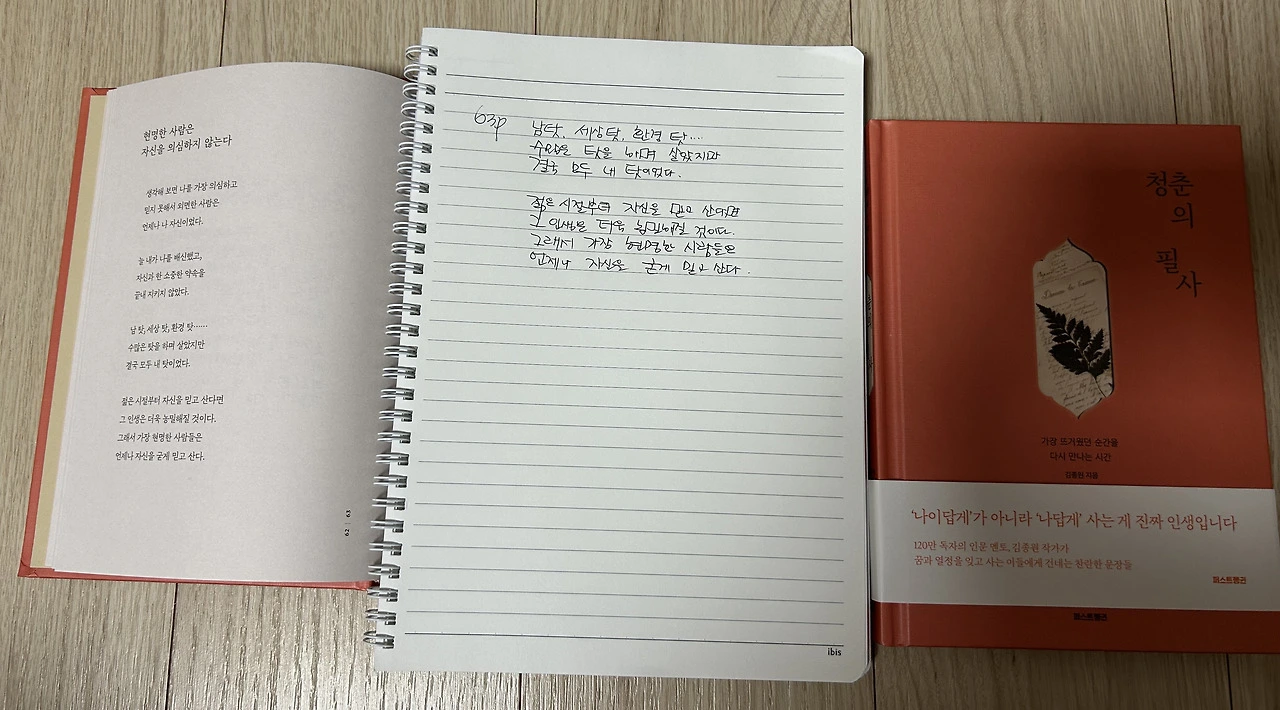 현명한 사람은
자신을 의심하지 않는다
생각해 보면 나를 가장 의심하고
믿지 못해서 외면한 사람은
언제나 나 자신이었다.
늘 내가 나를 배신했고,
자신과 한 소중한 약속을
끝내 지키지 않았다.
남 탓, 세상 탓, 환경 탓……
수많은 탓을 하며 살았지만
결국 모두 내 탓이었다.
젊은 시절부터 자신을 믿고 산다면
그 인생은 더욱 농밀해질 것이다.
그래서 가장 현명한 사람들은
언제나 자신을 굳게 믿고 산다.
62 | 63
63p
남탓, 세상탓, 환경 탓...
수많은 탓을 하며 살았지만
결국 모두 내 탓이었다.
젊은 시절부터 자신을 믿고 산다면
그 인생은 더욱 농밀해질 것이다.
그래서 가장 현명한 사람들은
언제나 자신을 굳게 믿고 산다.
ibis
청춘
의
필
사
가장 뜨거웠던 순간을
다시 만나는 시간
김종원 지음
'나이답게'가 아니라 '나답게' 사는 게 진짜 인생입니다
120만 독자의 인문 멘토, 김종원 작가가
꿈과 열정을 잊고 사는 이들에게 건네는 찬란한 문장들
퍼스트펭귄
퍼스트펭귄